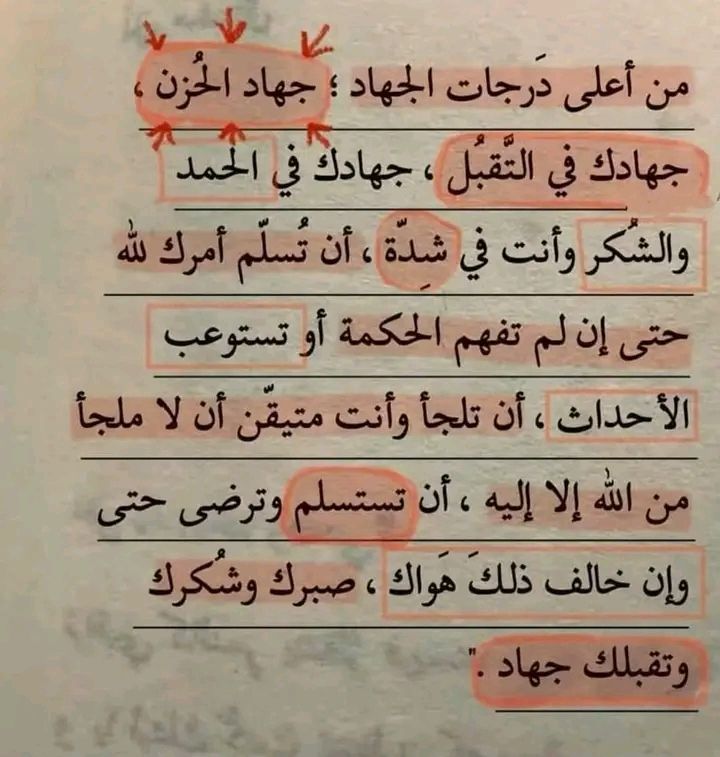 من أعلى دَرجات الجهاد ؛ جهاد الحُزن ،
جهادك في التَّقبُل ، جهادك في الحمد
والشُكر وأنت في شِدّة ، أن تُسلّم أمرك لله
حتى إن لم تفهم الحكمة أو تستوعب
الأحداث ، أن تلجأ وأنت متيقّن أن لا ملجأ
من الله إلا إليه ، أن تستسلم وترضى حتى
وإن خالف ذلكَ هَواك ، صبرك وشُكرك
وتقبلك جهاد ."